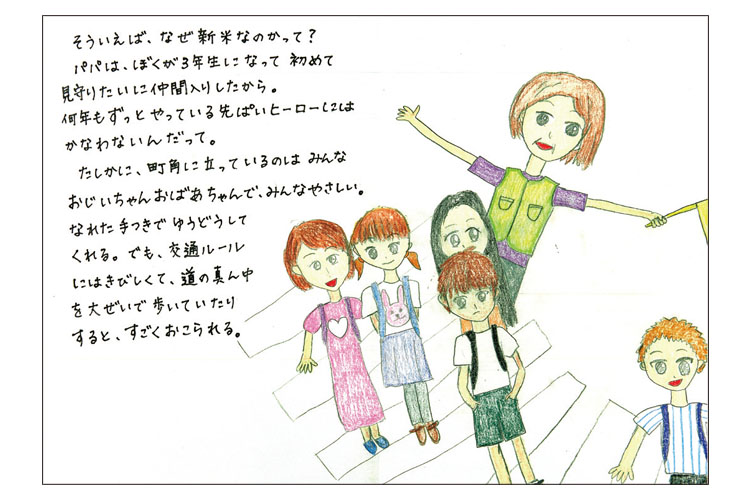 そういえば、なぜ新米なのかって？
パパは、ぼくが3年生になって初めて
見守りたいに仲間入りしたから。
何年もずっとやっている先ぱいヒーローには
かなわないんだって。
たしかに、町角に立っているのはみんな
おじいちゃんおばあちゃんで、みんなやさしい。
なれた手つきでゆうどうして
くれる。でも、交通ルール
にはきびしくて、道の真ん中
を大ぜいで歩いていたり
すると、すごくおこられる。